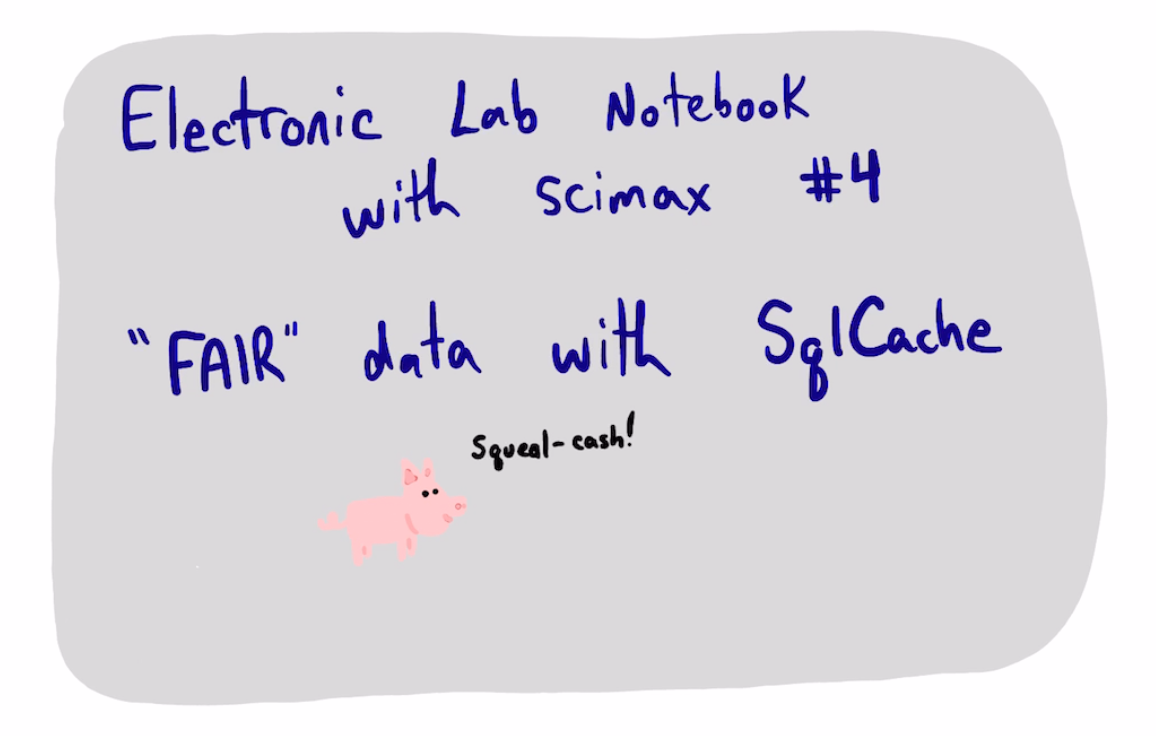 Electronic Lab Notebook
with scimax #4
"FAIR" data with SqlCache
Squeal-cash!